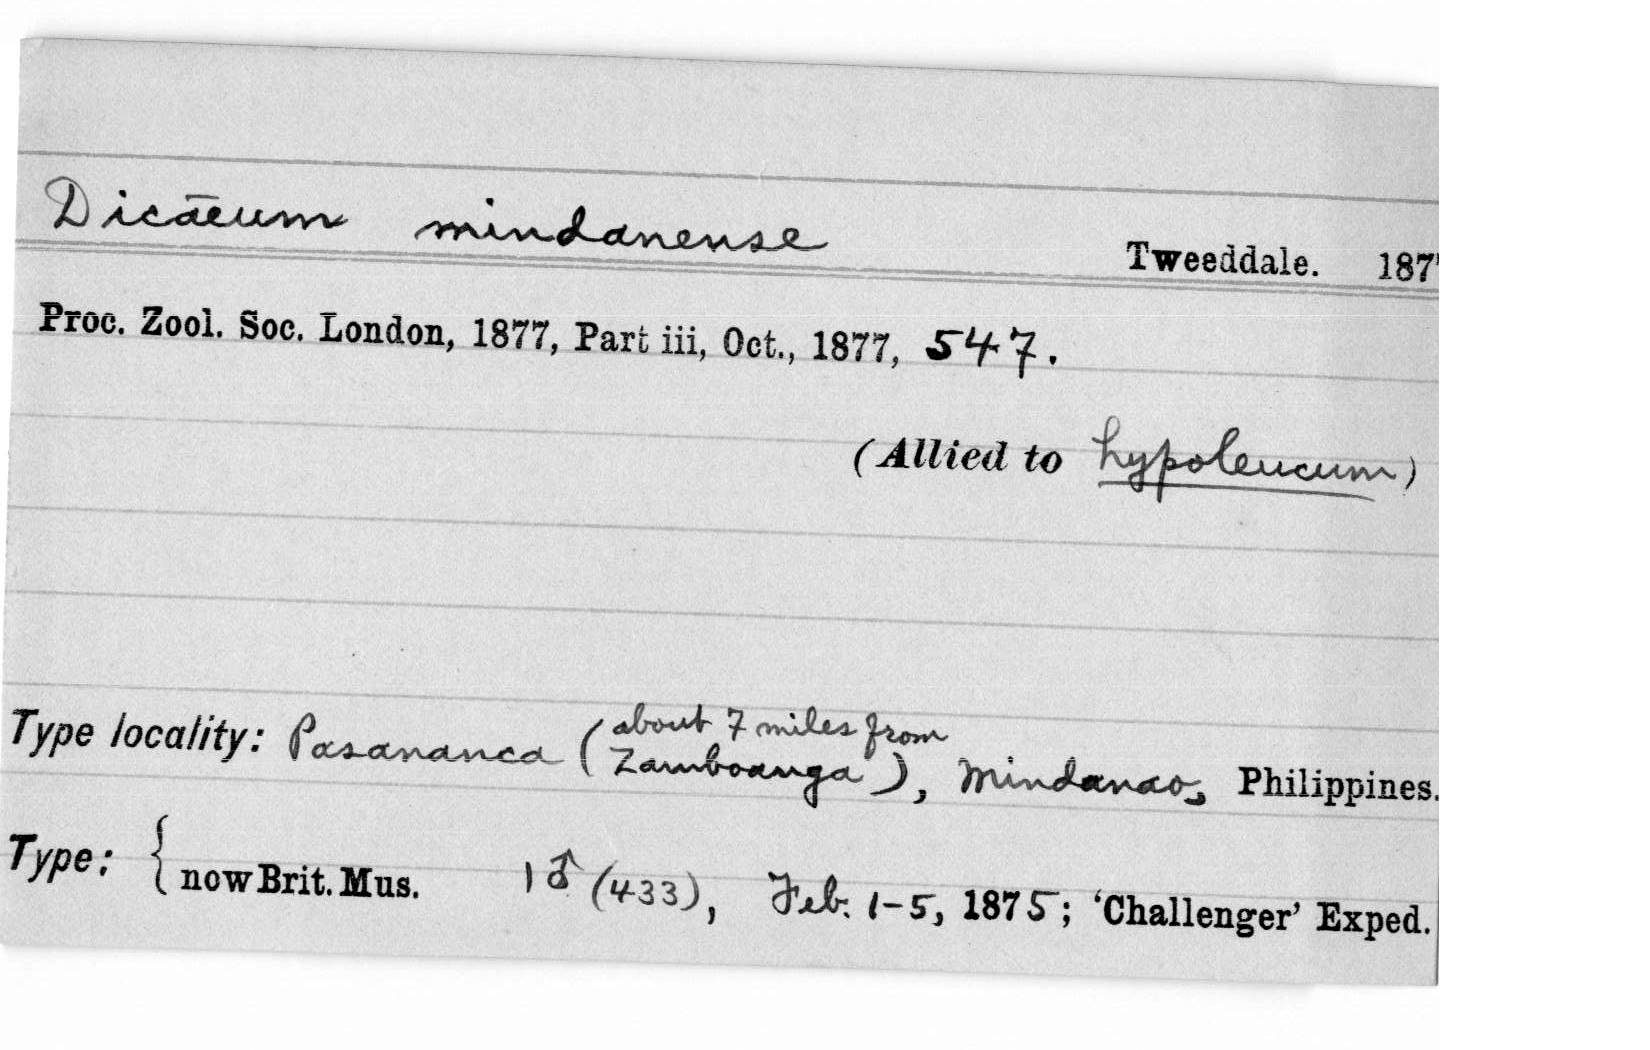 Dicaeum mindanense Tweeddale. 187
Proc. Zool. Soc. London, 1877, Part iii, Oct., 1877, 547.
(Allied to hypoleucum)
Type locality: Pasananca (about 7 miles from
Zamboanga), Mindanao, Philippines.
Type: { now Brit. Mus. 1 ♂ (433), Feb. 1-5, 1875; 'Challenger' Exped.